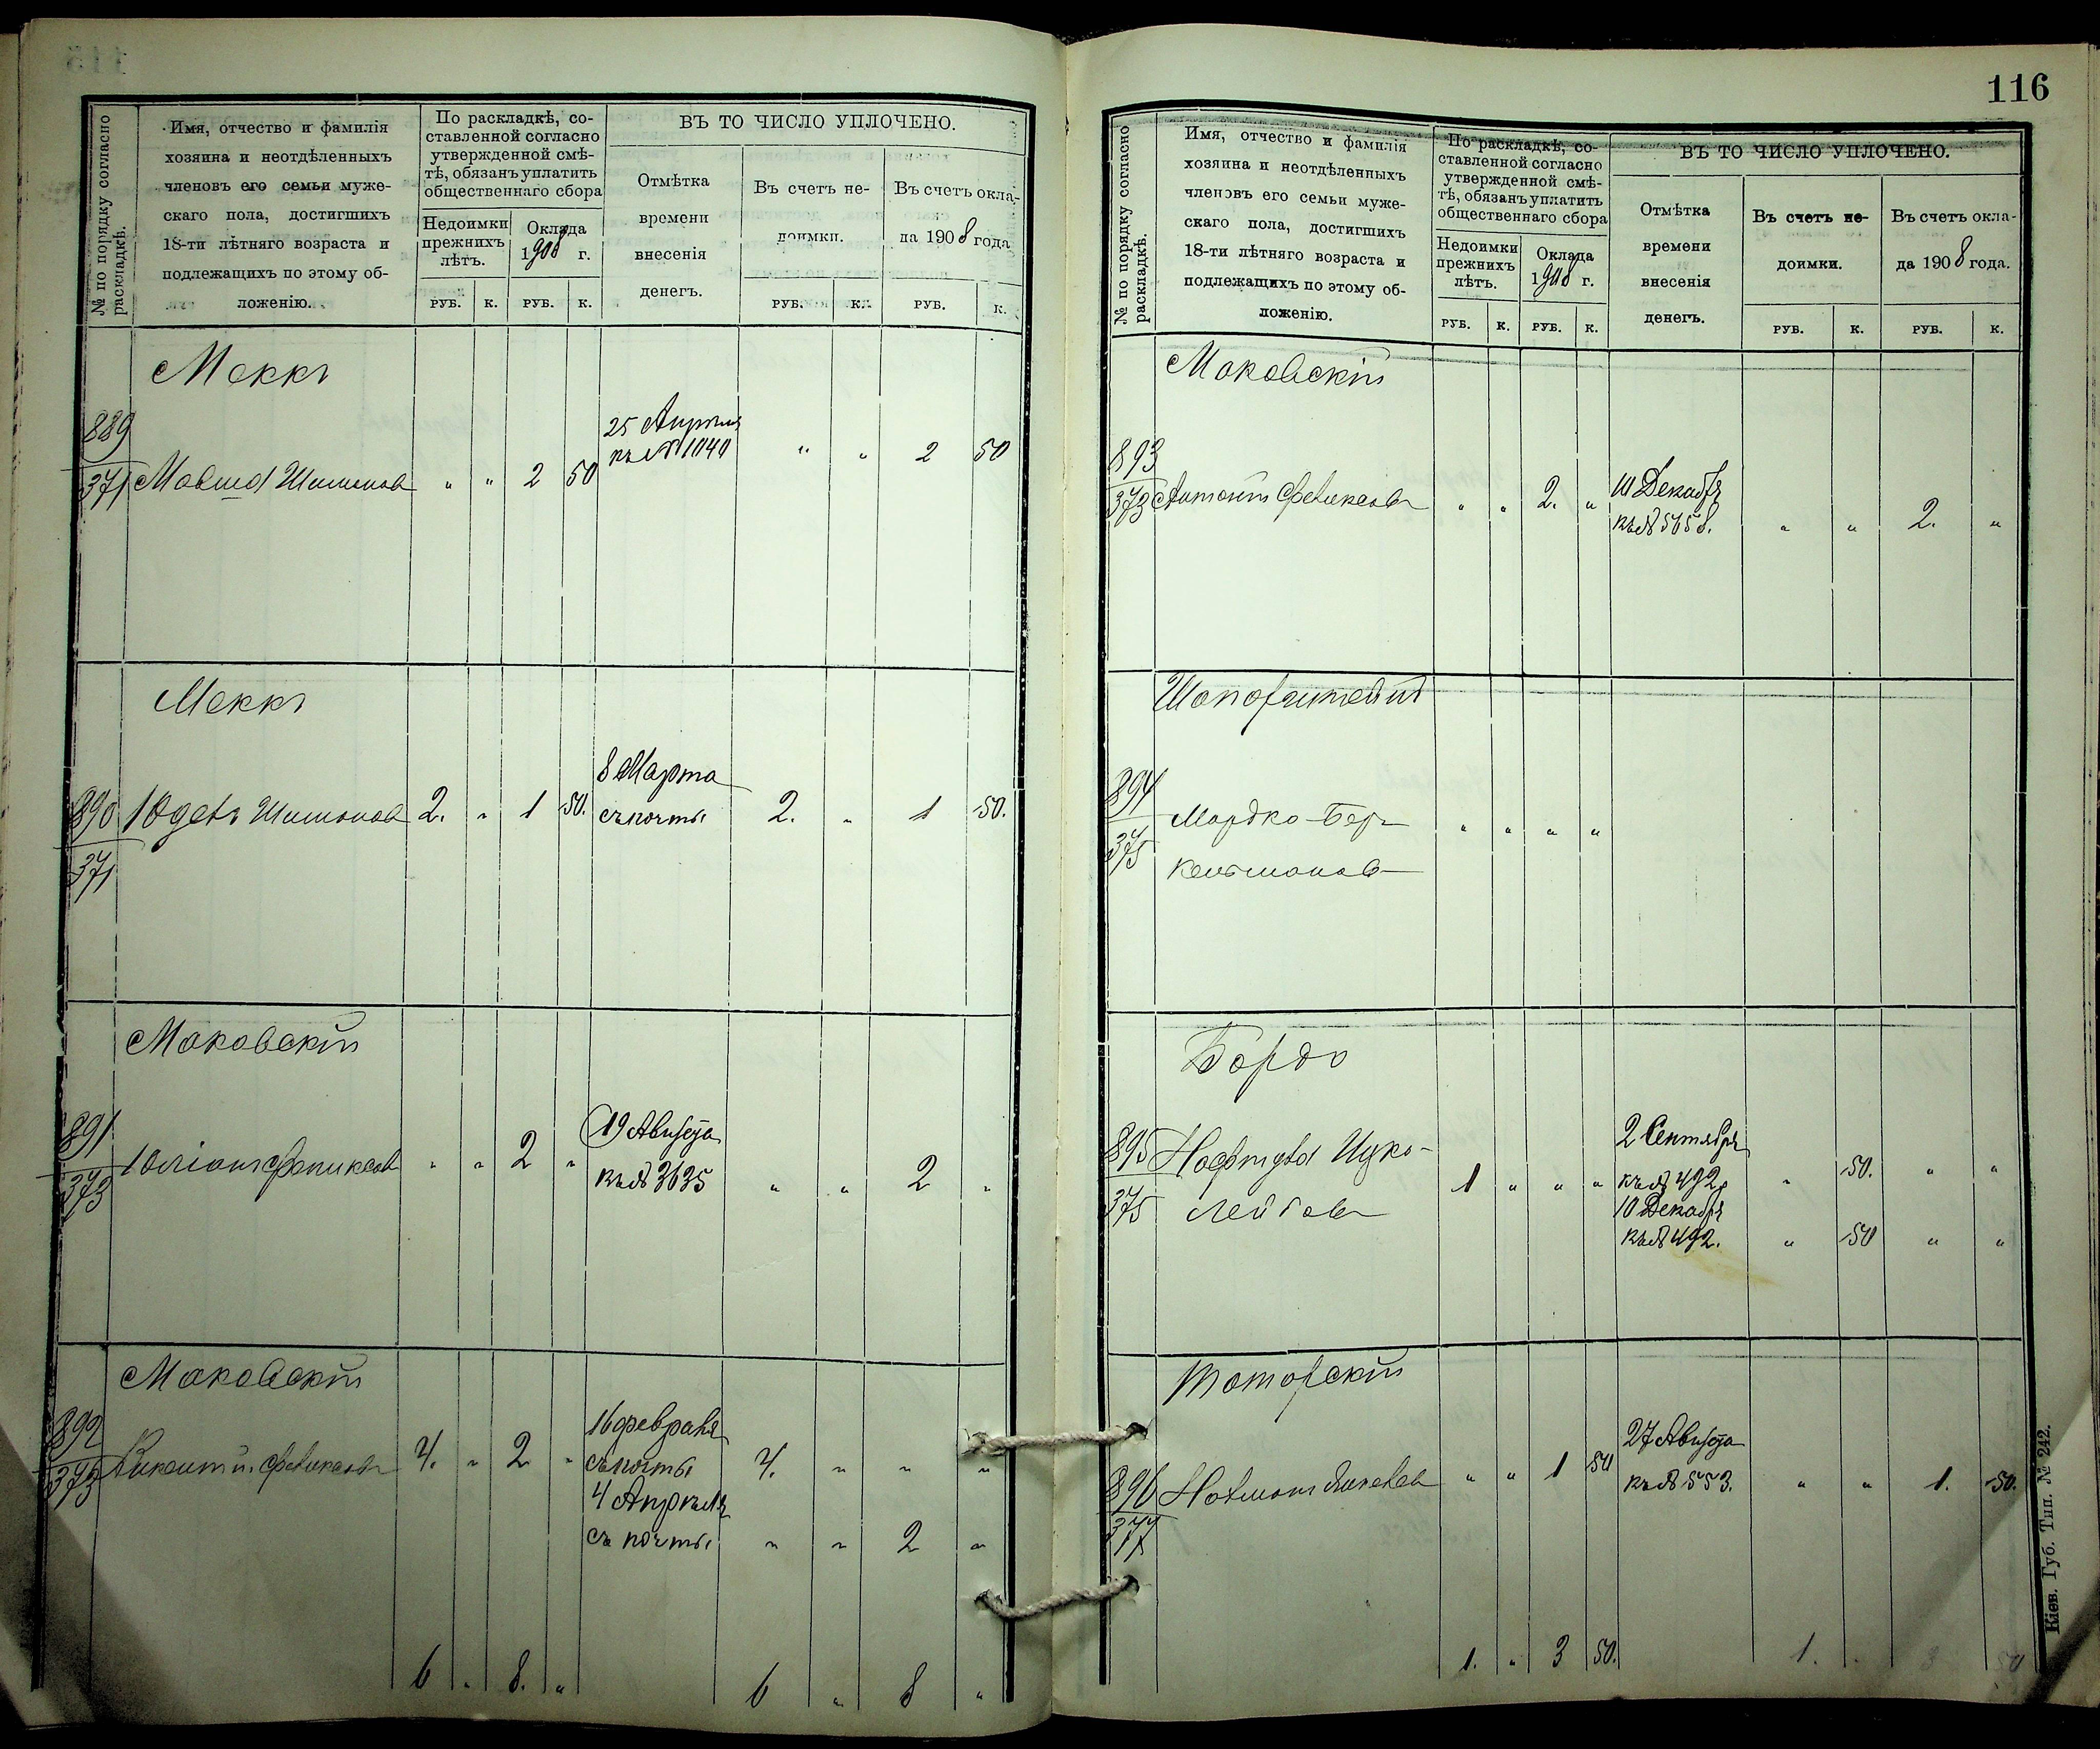 116
№ по порядку согласно раскладкѣ.
Имя, отчество и фамилія
хозяина и неотдѣленныхъ
членовъ его семьи муже-
скаго пола, достигшихъ
18-ти лѣтняго возраста и
подлежащихъ по этому об-
ложенію.
По раскладкѣ, со-
ставленной согласно
утвержденной смѣ-
тѣ, обязанъ уплатить
общественнаго сбора
Недоимки
прежнихъ
лѣтъ.
Оклада
1908 г.
РУБ. К. РУБ. К.
ВЪ ТО ЧИСЛО УПЛОЧЕНО.
Отмѣтка
времени
внесенія
денегъ.
Въ счетъ не-
доимки.
Въ счетъ окла-
да 1908 года
РУБ. К. РУБ. К.
Меккъ
889
371 Мовша Шимонов " " 2 50
25 Апрѣля
къ № 1040 " " 2 50
Меккъ
890 Юдель Шимонов 2. " 1 50.
371
8 Марта
съ почты 2. " 1 50.
Маковскій
891
373 Юліанъ Феликсов " " 2 "
19 Августа
къ № 3635 " " 2 "
Маковскій
892
373 Викентій Феликсов 4. " 2 "
16 февраля
съ почты 4. " " "
4 Апрѣля
съ почты " " 2 "
6 " 8. " 6 " 8 "
№ по порядку согласно раскладкѣ.
Имя, отчество и фамилія
хозяина и неотдѣленныхъ
членовъ его семьи муже-
скаго пола, достигшихъ
18-ти лѣтняго возраста и
подлежащихъ по этому об-
ложенію.
По раскладкѣ, со-
ставленной согласно
утвержденной смѣ-
тѣ, обязанъ уплатить
общественнаго сбора
Недоимки
прежнихъ
лѣтъ.
Оклада
1908 г.
РУБ. К. РУБ. К.
ВЪ ТО ЧИСЛО УПЛОЧЕНО.
Отмѣтка
времени
внесенія
денегъ.
Въ счетъ не-
доимки.
Въ счетъ окла-
да 1908 года.
РУБ. К. РУБ. К.
Маковскій
893
373 Антонъ Феликсов " " 2. "
10 Декабр
къ № 5658. " " 2. "
894
375
Мордко-Бер " " " "
Кельманов
Бордо
895 Ицко-
375 Лейбов 1 " " "
2 Сентября
къ № 492 " 50. " "
10 Декабр
къ № 492. " 50 " "
Таторскій
896 Нахман " " 1 50
377
27 Августа
къ № 553. " " 1. 50.
1. " 3 50. 1. " 3 50
Кіев. Губ. Тип. № 242.